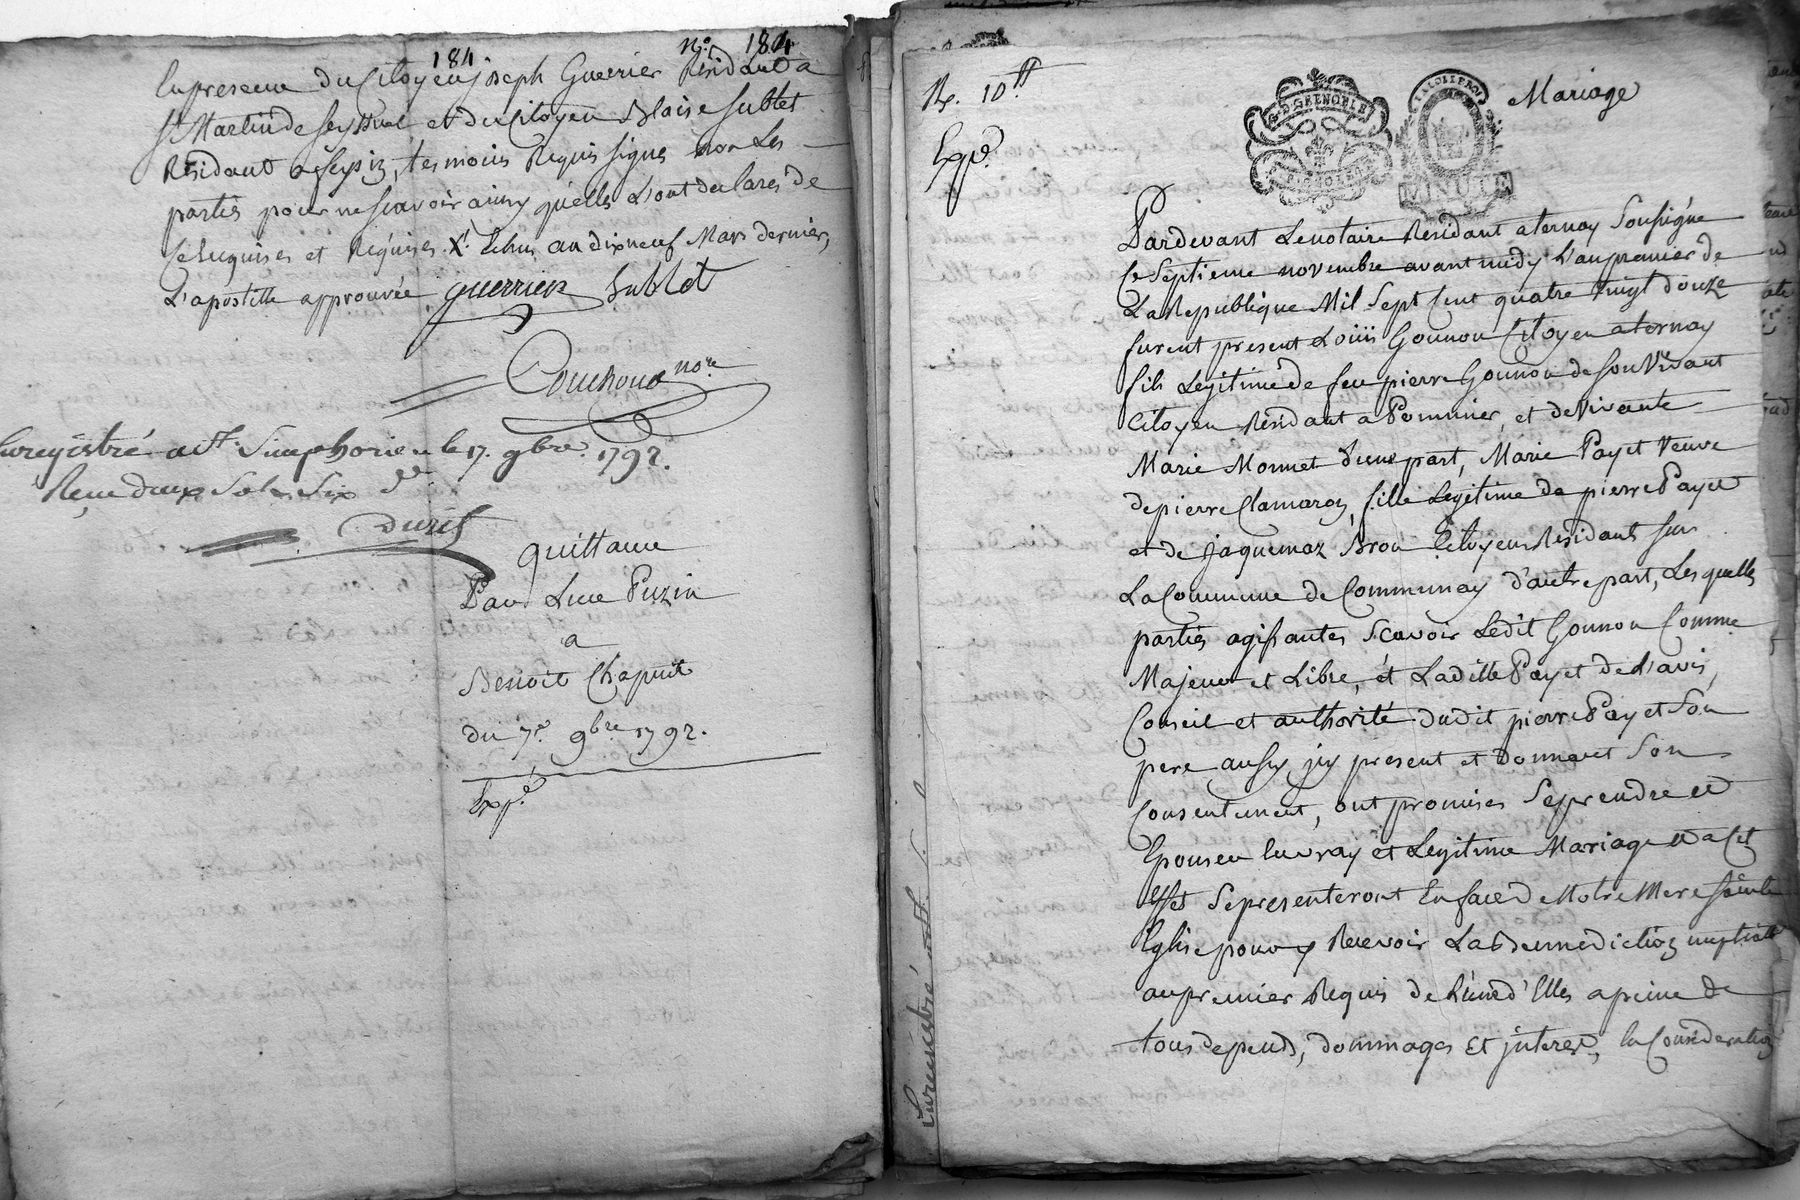 184 n.o 184
En presence du Citoyen joseph Guerrier Residant a
St Martin de Seyssuel et du Citoyen Blaise Sublet
Residant a Seysiz, tesmoins Requis signés non Les
partiés pour ne scavoir ainsy qu'elles L'ont declaré de
Ce Enquises et Requises. X. Echus au dixneuf Mars dernier,
L'apostille approuvée guerrier Sublet
Couchoud nore
Enregistré a St Simphorien le 17. 9bre. 1792.
Recu deux Sols Six drs
quittance
Par Luc Puzin
a
Benoit Chapuit
du 7e. 9bre 1792.
Expé.
R. 10tt
Expé.
GRENOBLE
LA LOI LE ROI
MINUTE
Mariage
Pardevant Le notaire Residant a ternay Soussigné
Ce Septieme novembre avant midy L'an premier de
La Republique Mil Sept Cent quatre vingt douze
furent present Loüis Gounon Citoyen a ternay
fils Legitime de feu pierre Gounon de Son Vivant
Citoyen Residant a Pommier, et de Vivante
Marie Monnet d'une part, Marie Payet Veuve
de pierre Clamaroz, fille Legitime de pierre Payet
et de jaquemaz Brou Citoyens Residants sur
La Commune de Communay d'autre part, Lesquelles
partiés agissantes Scavoir Ledit Gounon Comme
Majeur et Libre, et Laditte Payet de L'avis,
Conseil et authorité dudit pierre Payet Son
pere aussy jcy present et donnant Son
Consentement, ont promises Se prendre et
Epouser En vray et Legitime Mariage et a Cet
effet Se presenteront En face de Notre Mere Sainte
Eglise pour y Recevoir La Bennediction nuptialle
au premier Requis de L'une d'Elles a peine de
tous depends, dommages et jnterest, En Consideration
Enregistré a St. S.